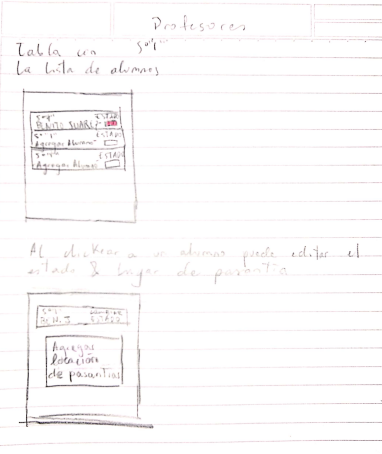 Profesores
Tabla con
La lista de alumnos
ESTADO
BENITO SUAREZ
ESTADO
Agregar Alumno
ESTADO
Agregar Alumno
Al clickear a un alumno puede editar el
estado & lugar de pasantia
ESTADO
Agregar
locación
de pasantias